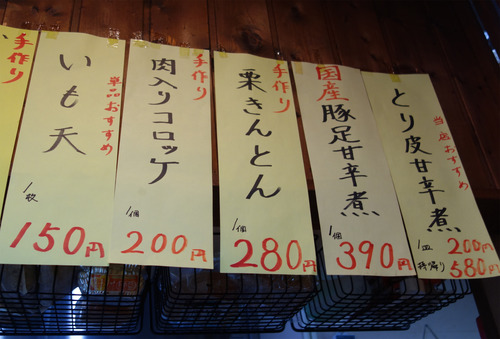 手作り
いも天
単品おすすめ
1枚
150円
手作り
肉入りコロッケ
1個
200円
手作り
栗きんとん
1個
280円
国産豚足甘辛煮
1個
390円
とり皮甘辛煮
当店おすすめ
1皿 200円
持帰り 580円